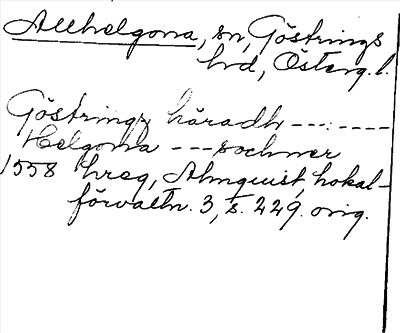 Allhelgona, sn, Göstrings
hrd, Österg. l.
Göstrings häradh --------
Helgona --- sochner
1558 hreg, Almquist, lokal-
förvaltn. 3, s. 229. orig.